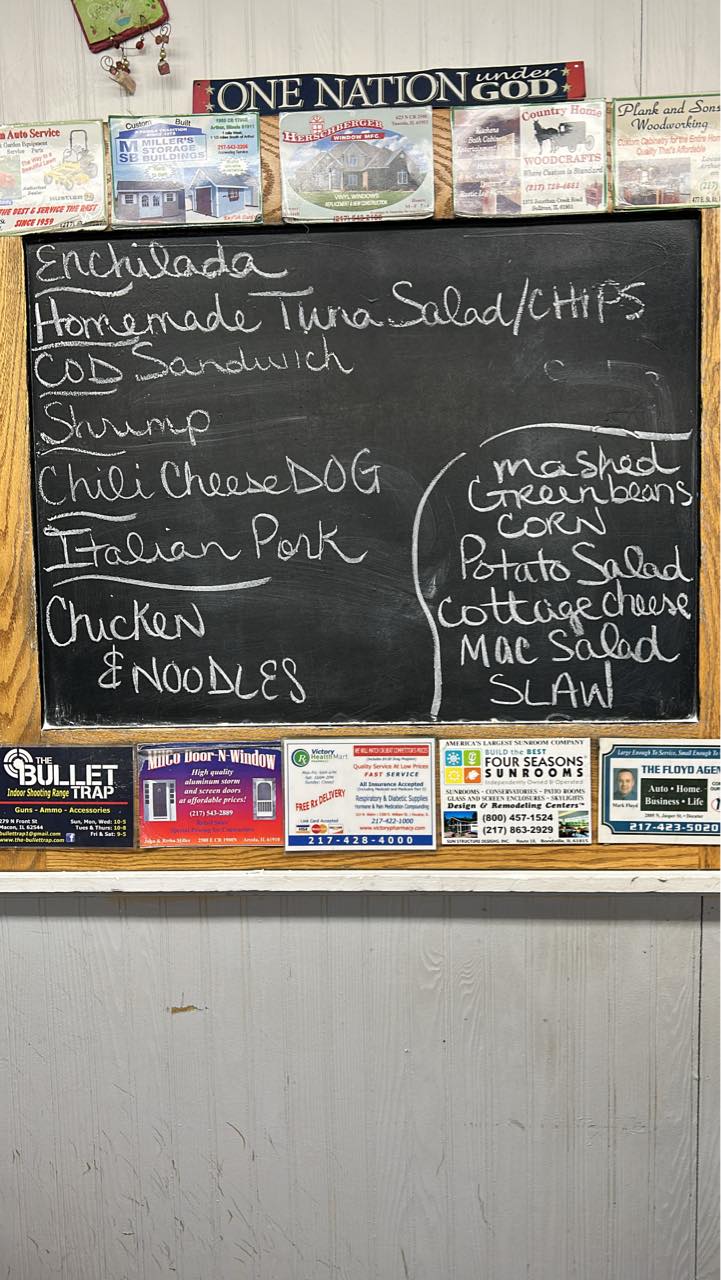 ONE NATION under GOD
n Auto Service
Garden Equipment
Service Parts
THE BEST & SERVICE THE REST
SINCE 1959
Custom Built
MILLER'S
STORAGE
SB BUILDINGS
217-543-
HERSCHBERGER
WINDOW MFG.
VINYL WINDOWS
REPLACEMENT & NEW CONSTRUCTION
Country Home
WOODCRAFTS
Where Custom is Standard
Plank and Sons
Woodworking
Custom Cabinetry for the Entire Ho
Quality That's Affordable
Enchilada
Homemade Tuna Salad/CHIPS
COD Sandwich
Shrimp
Chili Cheese DOG
Italian Pork
Chicken
& NOODLES
mashed
Green beans
CORN
Potato Salad
Cottage cheese
Mac Salad
SLAW
THE BULLET TRAP
Indoor Shooting Range
Guns - Ammo - Accessories
279 N Front St
Macon, IL 62544
Sun, Mon, Wed: 10-5
Tues & Thurs: 10-8
Fri & Sat: 9-5
www.the-bullettrap.com
Milco Door-N-Window
High quality
aluminum storm
and screen doors
at affordable prices!
(217) 543-2889
Victory
HealthMart
Pharmacy
Quality Service At Low Prices
FAST SERVICE
FREE RX DELIVERY
All Insurance Accepted
Respiratory & Diabetic Supplies
217-422-1000
www.victorypharmacy.com
217-428-4000
AMERICA'S LARGEST SUNROOM COMPANY
BUILD the BEST
FOUR SEASONS
SUNROOMS
Independently Owned & Operated
SUNROOMS - CONSERVATORIES - PATIO ROOMS
GLASS AND SCREEN ENCLOSURES - SKYLIGHTS
Design & Remodeling Centers™
(800) 457-1524
(217) 863-2929
Large Enough To Service, Small Enough To
THE FLOYD AGEN
Auto • Home
Business • Life
Mark Floyd
217-423-5020